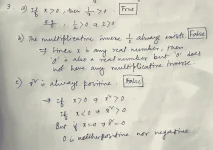 3 a) If x>0, then 1/x >0 True
Eg, 1/2 >0 2>0
b) The multiplicative inverse 1/x always exists False
→ Since x is any real number, then
'0' is also a real number but '0' does
not have any multiplicative inverse
c) x² is always positive False
→ If x>0 → x²>0
If x<0 → x²>0
But if x=0 → x²=0
0 is neither positive nor negative